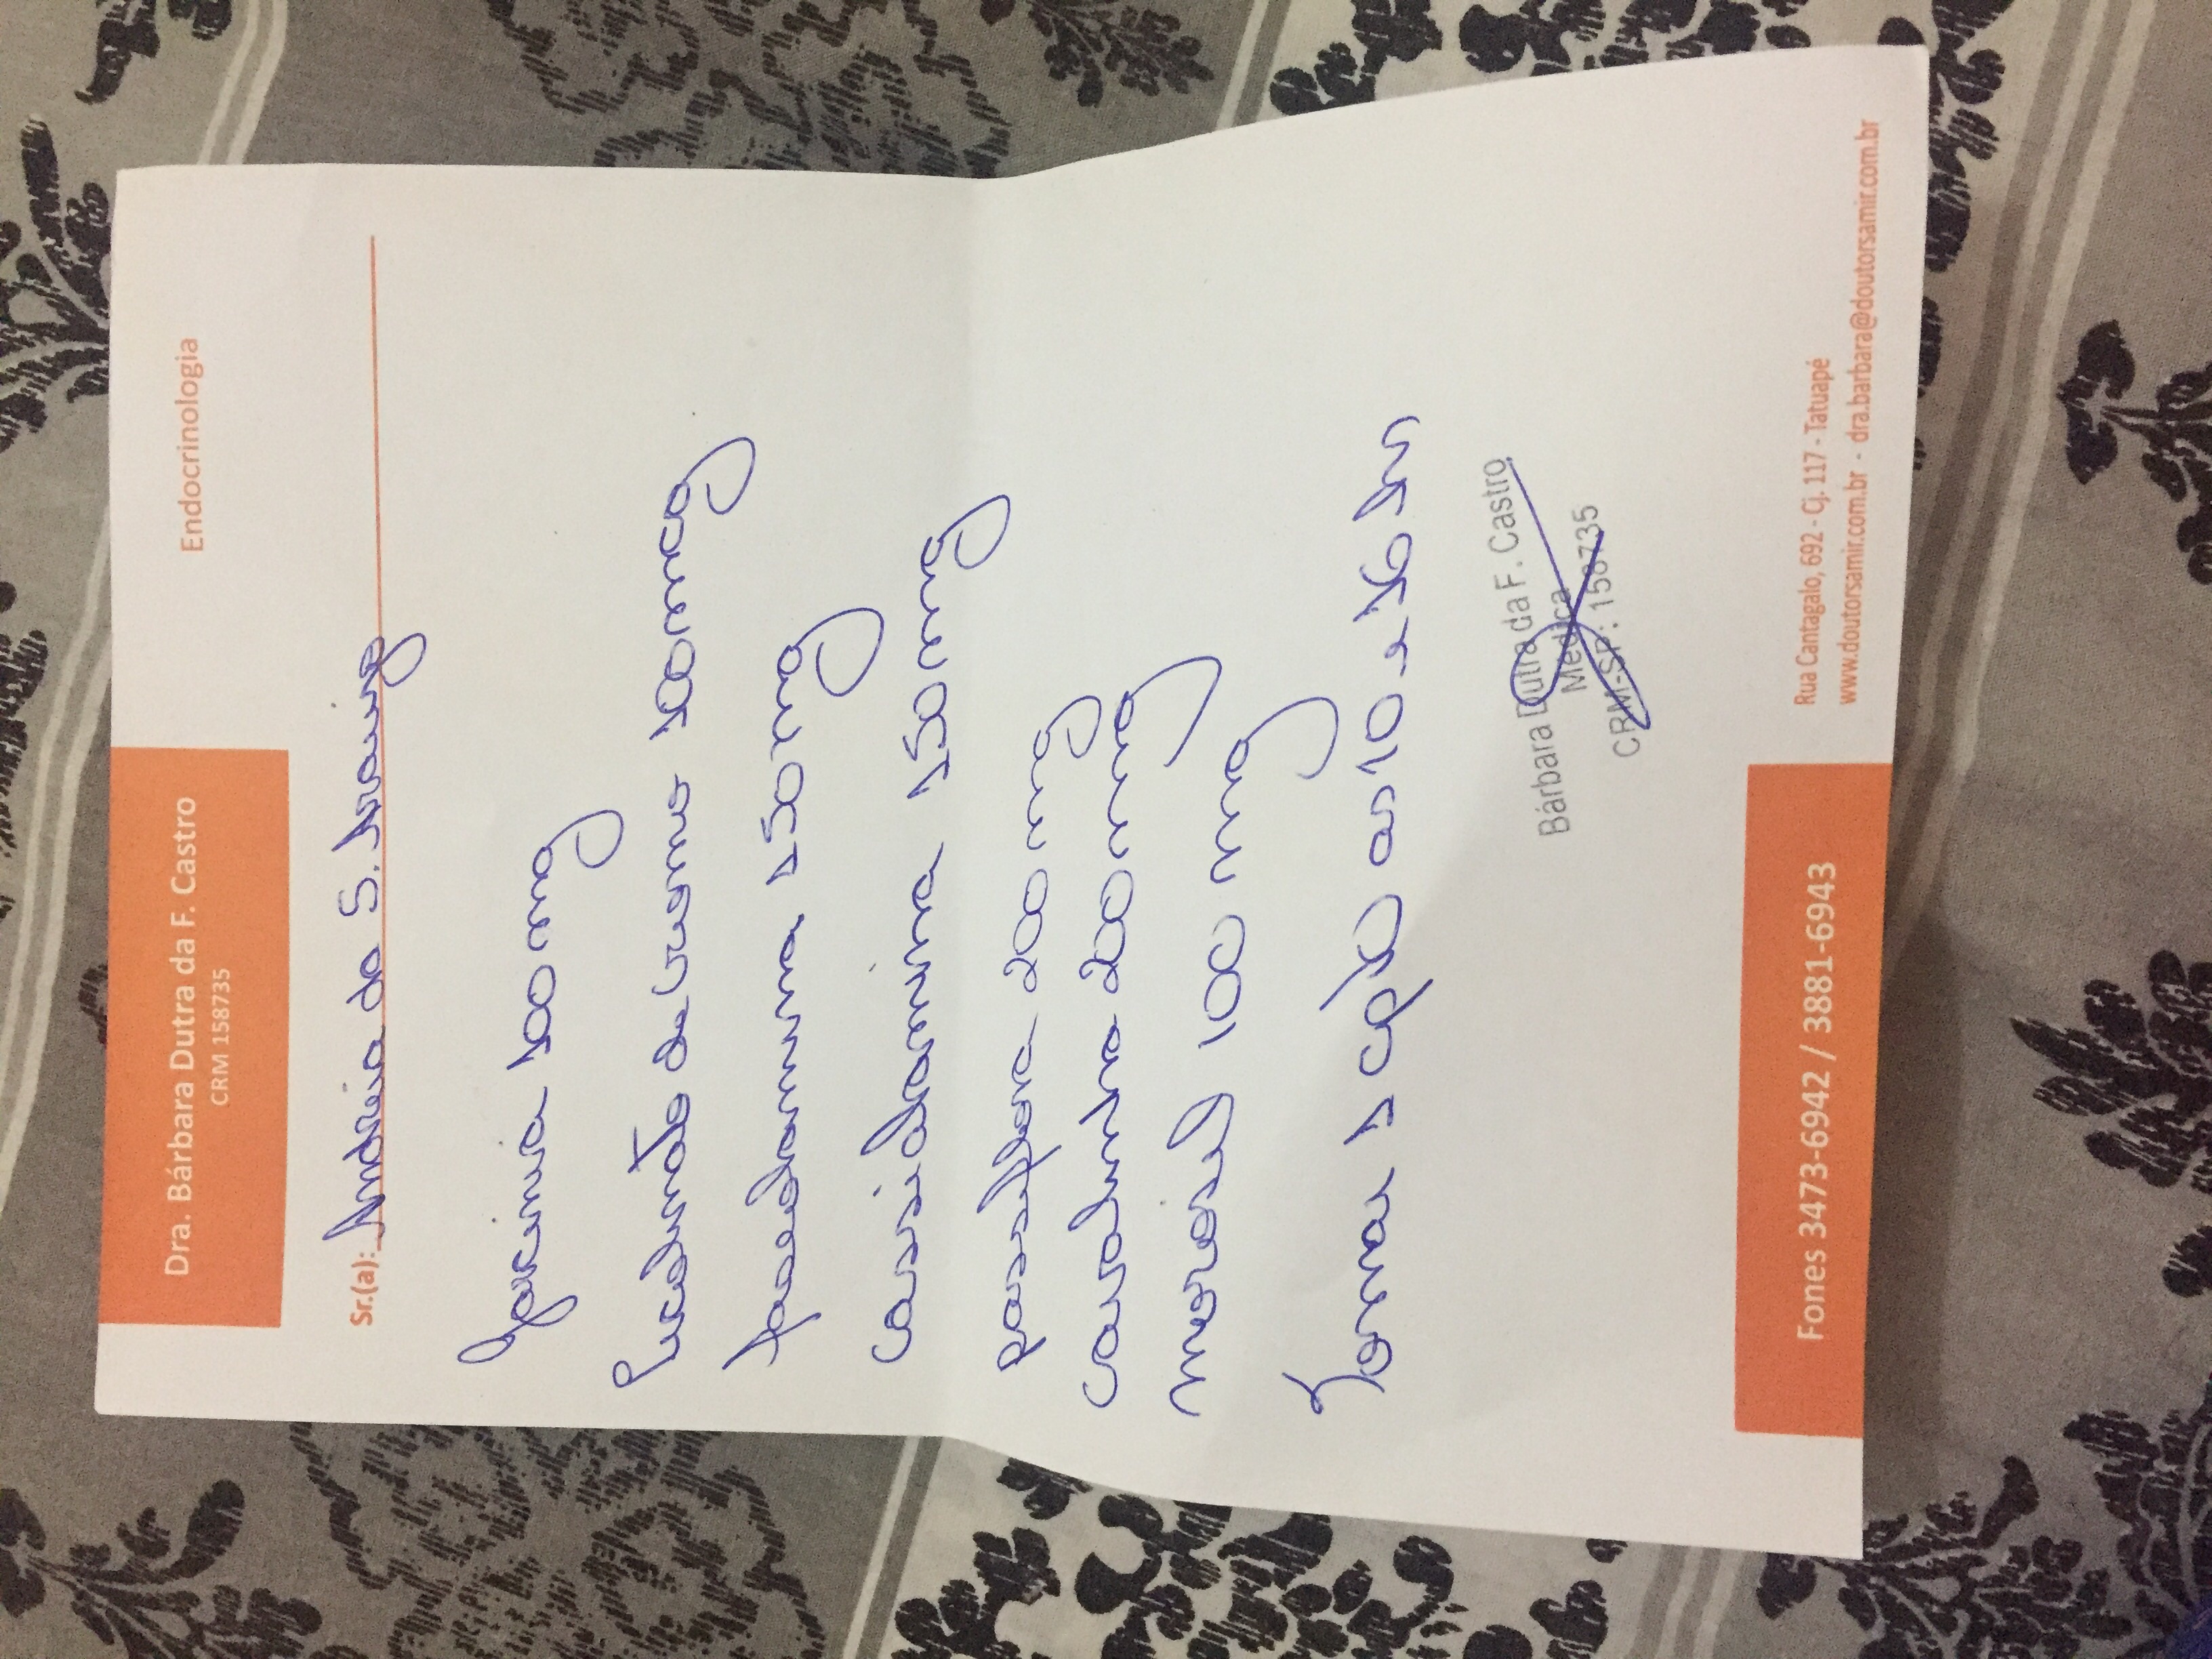 Dra. Bárbara Dutra da F. Castro
CRM 158735
Endocrinologia
Sr.(a): Andreia da S. Araujo
Garcinia 100 mg
Picolinato de Cromo 100 mcg
faseolamina 150 mg
cassiolamina 150 mg
passiflora 200 mg
cavalinha 200 mg
morosil 100 mg
Tomar 1 cp VO as 10 e 16 hs
Bárbara Dutra da F. Castro
Médica
CRM-SP: 158735
Fones 3473-6942 / 3881-6943
Rua Cantagalo, 692 - Cj. 117 - Tatuapé
www.doutorsamir.com.br - dra.barbara@doutorsamir.com.br